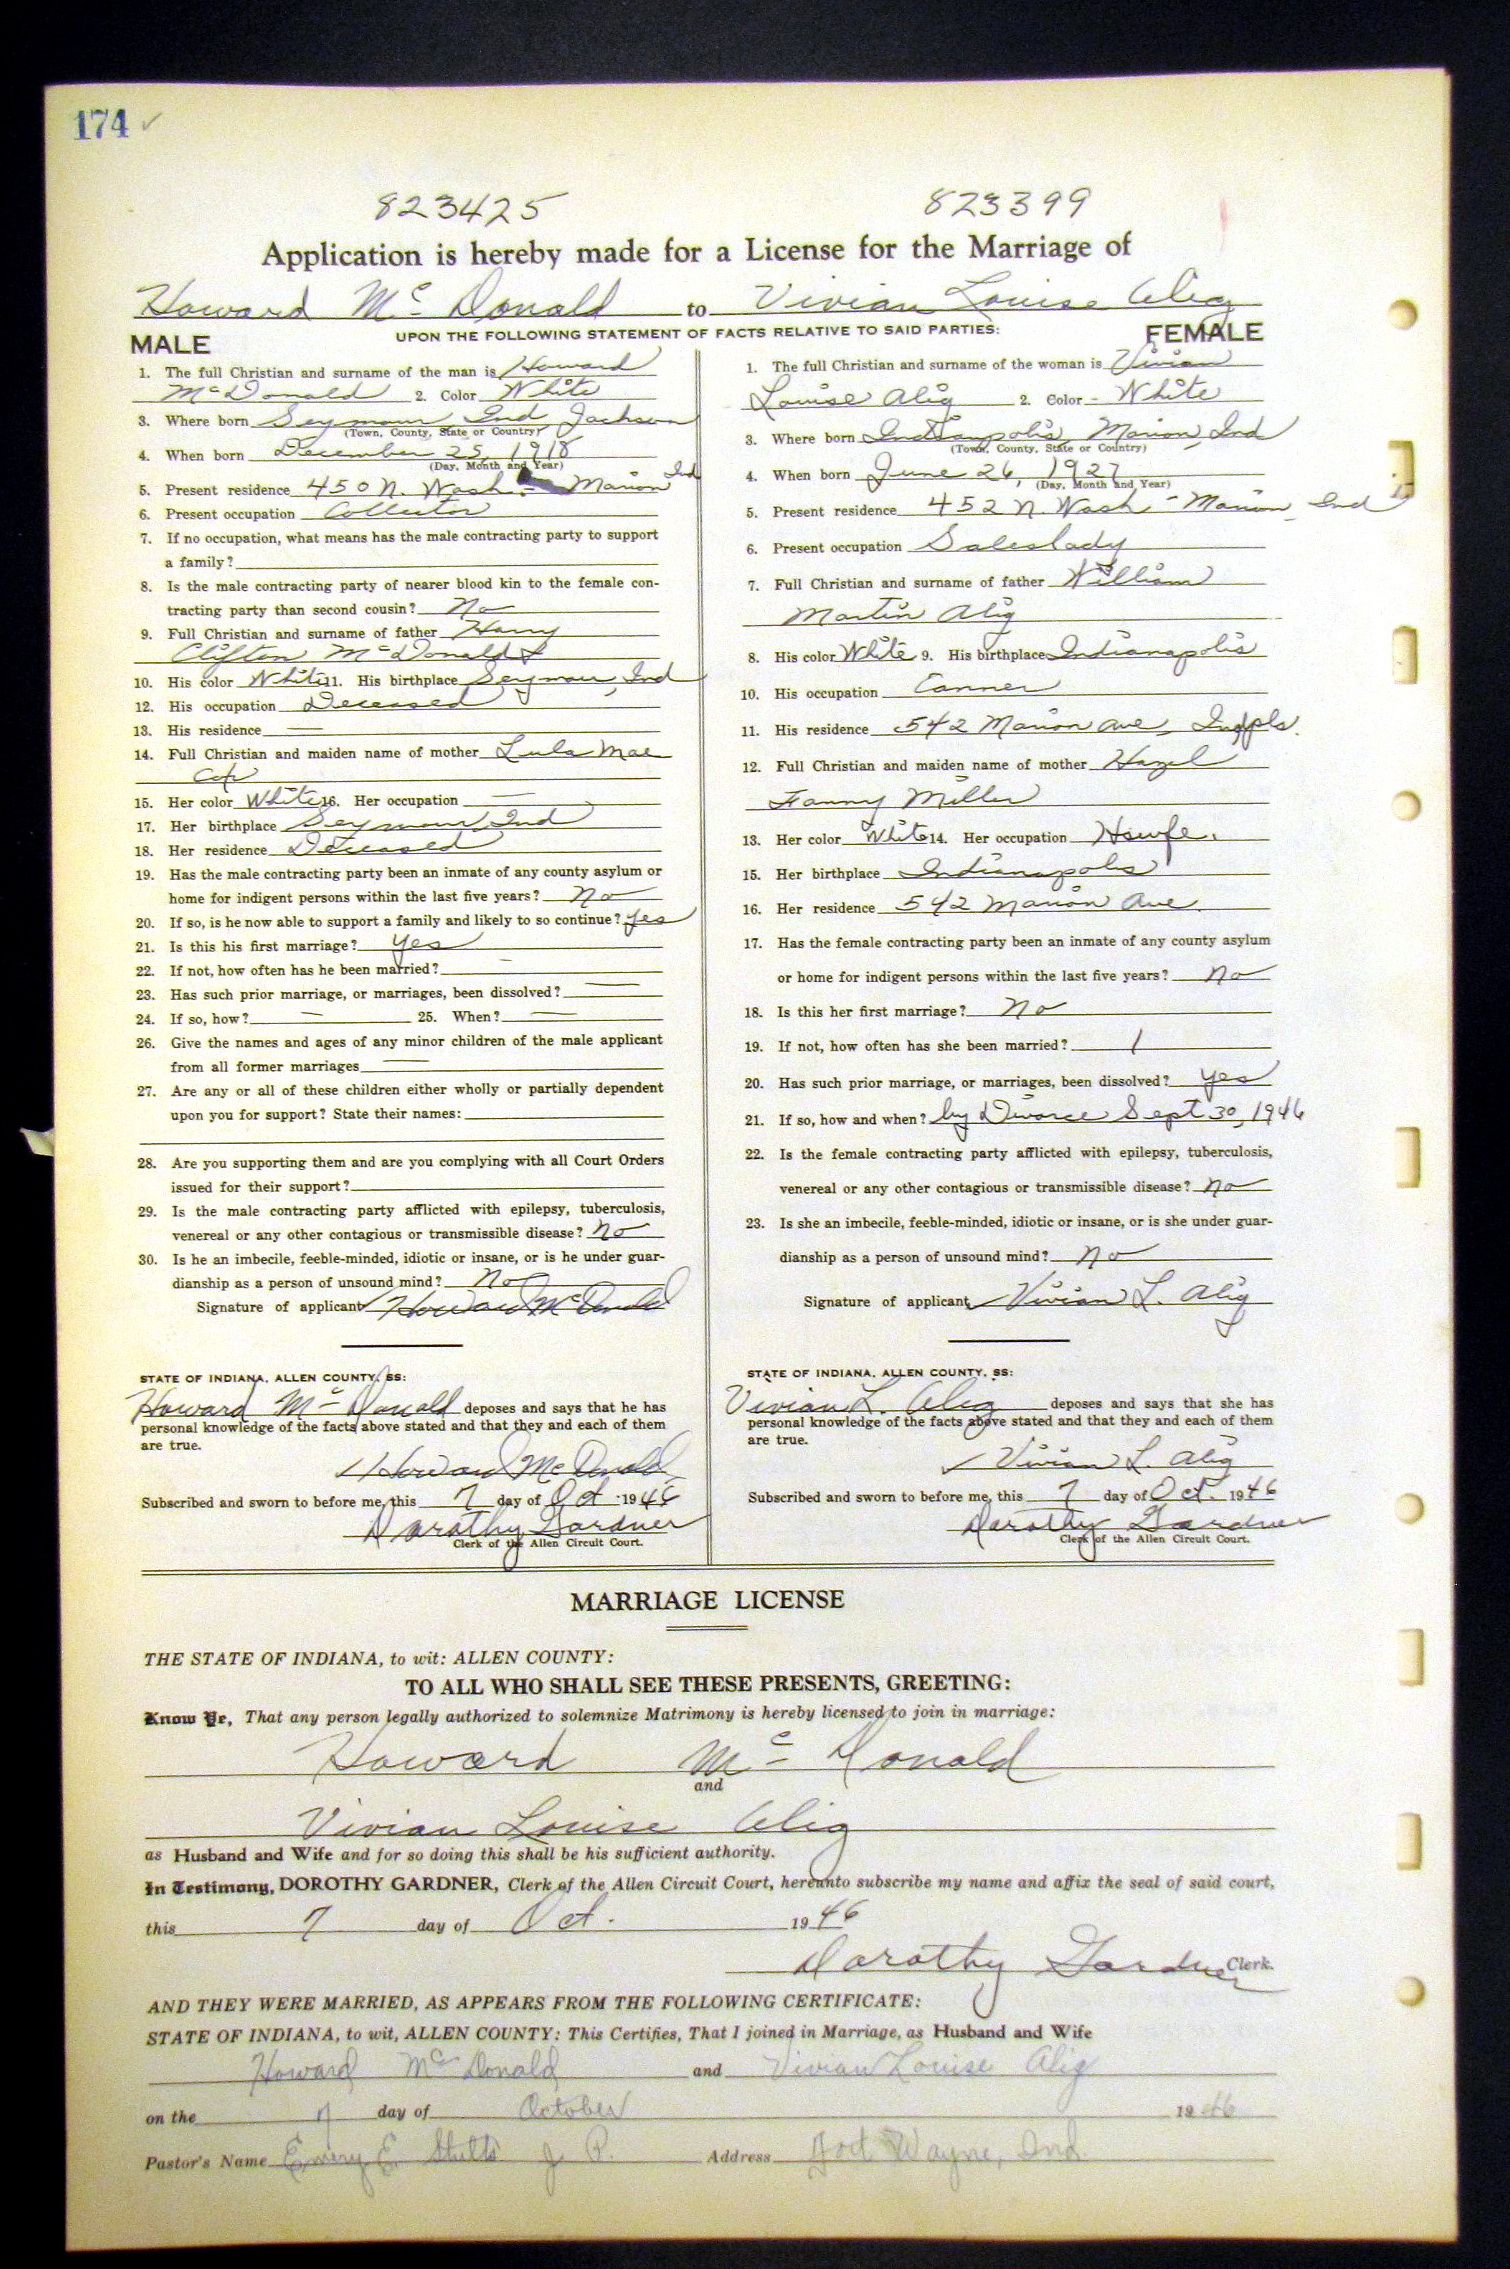 174 ✓
823425 823399
Application is hereby made for a License for the Marriage of
Howard Mc Donald to Vivian Louise Alig
UPON THE FOLLOWING STATEMENT OF FACTS RELATIVE TO SAID PARTIES:
MALE
1. The full Christian and surname of the man is Howard
McDonald 2. Color White
3. Where born Seymour Ind Jackson
(Town, County, State or Country)
4. When born December 25, 1918
(Day, Month and Year)
5. Present residence 450 N. Wash - Marion Ind
6. Present occupation Collector
7. If no occupation, what means has the male contracting party to support
a family?
8. Is the male contracting party of nearer blood kin to the female con-
tracting party than second cousin? No
9. Full Christian and surname of father Harry
Clifton McDonald
10. His color White 11. His birthplace Seymour, Ind
12. His occupation Deceased
13. His residence —
14. Full Christian and maiden name of mother Lula Mae
15. Her color White 16. Her occupation —
17. Her birthplace Seymour, Ind
18. Her residence Deceased
19. Has the male contracting party been an inmate of any county asylum or
home for indigent persons within the last five years? No
20. If so, is he now able to support a family and likely to so continue? yes
21. Is this his first marriage? yes
22. If not, how often has he been married? -
23. Has such prior marriage, or marriages, been dissolved? —
24. If so, how? — 25. When? —
26. Give the names and ages of any minor children of the male applicant
from all former marriages —
27. Are any or all of these children either wholly or partially dependent
upon you for support? State their names:
28. Are you supporting them and are you complying with all Court Orders
issued for their support?
29. Is the male contracting party afflicted with epilepsy, tuberculosis,
venereal or any other contagious or transmissible disease? No
30. Is he an imbecile, feeble-minded, idiotic or insane, or is he under guar-
dianship as a person of unsound mind? No
Signature of applicant Howard McDonald
STATE OF INDIANA, ALLEN COUNTY, SS:
Howard Mc Donald deposes and says that he has
personal knowledge of the facts above stated and that they and each of them
are true.
Howard McDonald
Subscribed and sworn to before me, this 7 day of Oct 1946
Dorothy Gardner
Clerk of the Allen Circuit Court.
FEMALE
1. The full Christian and surname of the woman is Vivian
Louise Alig 2. Color - White
3. Where born Indianapolis, Marion, Ind
(Town, County, State or Country)
4. When born June 26, 1927
(Day, Month and Year)
5. Present residence 452 N. Wash - Marion, Ind
6. Present occupation Saleslady
7. Full Christian and surname of father William
Martin Alig
8. His color White 9. His birthplace Indianapolis
10. His occupation Canner
11. His residence 542 Marion Ave, Indpls.
12. Full Christian and maiden name of mother Hazel
Fanny Miller
13. Her color White 14. Her occupation Hswfe.
15. Her birthplace Indianapolis
16. Her residence 542 Marion Ave
17. Has the female contracting party been an inmate of any county asylum
or home for indigent persons within the last five years? No
18. Is this her first marriage? No
19. If not, how often has she been married? 1
20. Has such prior marriage, or marriages, been dissolved? yes
21. If so, how and when? by Divorce Sept 30, 1946
22. Is the female contracting party afflicted with epilepsy, tuberculosis,
venereal or any other contagious or transmissible disease? No
23. Is she an imbecile, feeble-minded, idiotic or insane, or is she under guar-
dianship as a person of unsound mind? No
Signature of applicant Vivian L. Alig
STATE OF INDIANA, ALLEN COUNTY, SS:
Vivian L. Alig deposes and says that she has
personal knowledge of the facts above stated and that they and each of them
are true.
Vivian L. Alig
Subscribed and sworn to before me, this 7 day of Oct. 1946
Dorothy Gardner
Clerk of the Allen Circuit Court.
MARRIAGE LICENSE
THE STATE OF INDIANA, to wit: ALLEN COUNTY:
TO ALL WHO SHALL SEE THESE PRESENTS, GREETING:
Know Ye, That any person legally authorized to solemnize Matrimony is hereby licensed to join in marriage:
Howard Mc Donald
and
Vivian Louise Alig
as Husband and Wife and for so doing this shall be his sufficient authority.
In Testimony, DOROTHY GARDNER, Clerk of the Allen Circuit Court, hereunto subscribe my name and affix the seal of said court,
this 7 day of Oct. 1946
Dorothy Gardner Clerk.
AND THEY WERE MARRIED, AS APPEARS FROM THE FOLLOWING CERTIFICATE:
STATE OF INDIANA, to wit, ALLEN COUNTY: This Certifies, That I joined in Marriage, as Husband and Wife
Howard Mc Donald and Vivian Louise Alig
on the 7 day of October 1946
Pastor's Name Emery E. Stults J P. Address Fort Wayne, Ind.